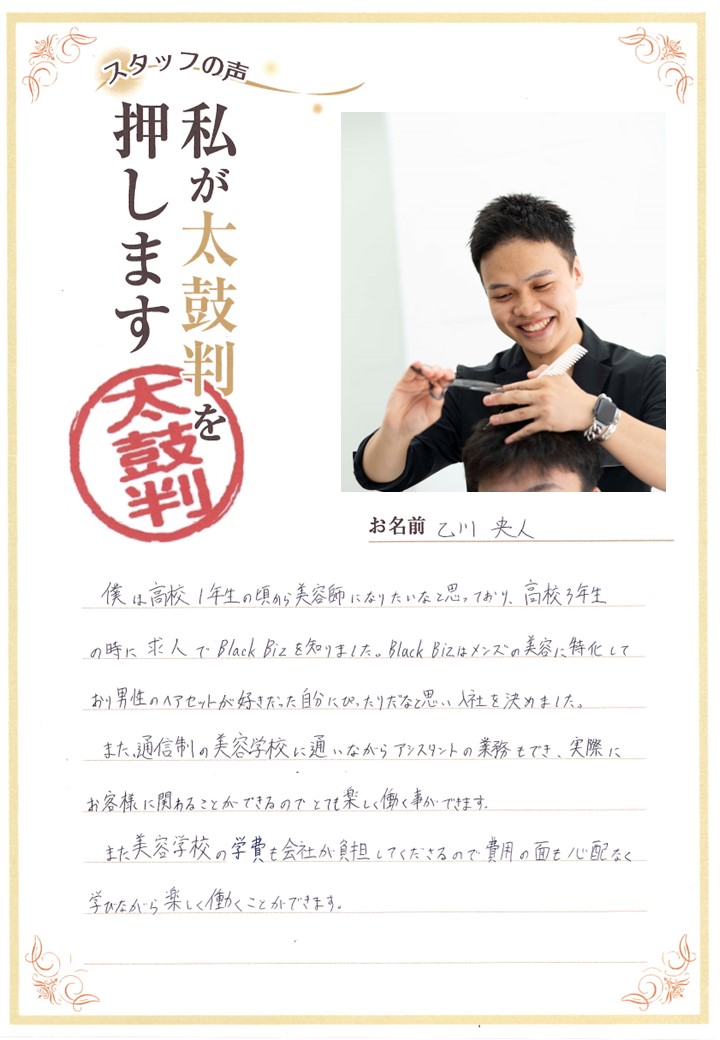 スタッフの声
私が太鼓判を
押します
太鼓判
お名前 乙川 央人
僕は高校1年生の頃から美容師になりたいなと思っており、高校3年生
の時に求人でBlack Bizを知りました。Black Bizはメンズの美容に特化して
おり男性のヘアセットが好きだった自分にぴったりだなと思い入社を決めました。
また、通信制の美容学校に通いながらアシスタントの業務もでき、実際に
お客様に関わることができるのでとても楽しく働く事ができます。
また美容学校の学費も会社が負担してくださるので費用の面も心配なく
学びながら楽しく働くことができます。